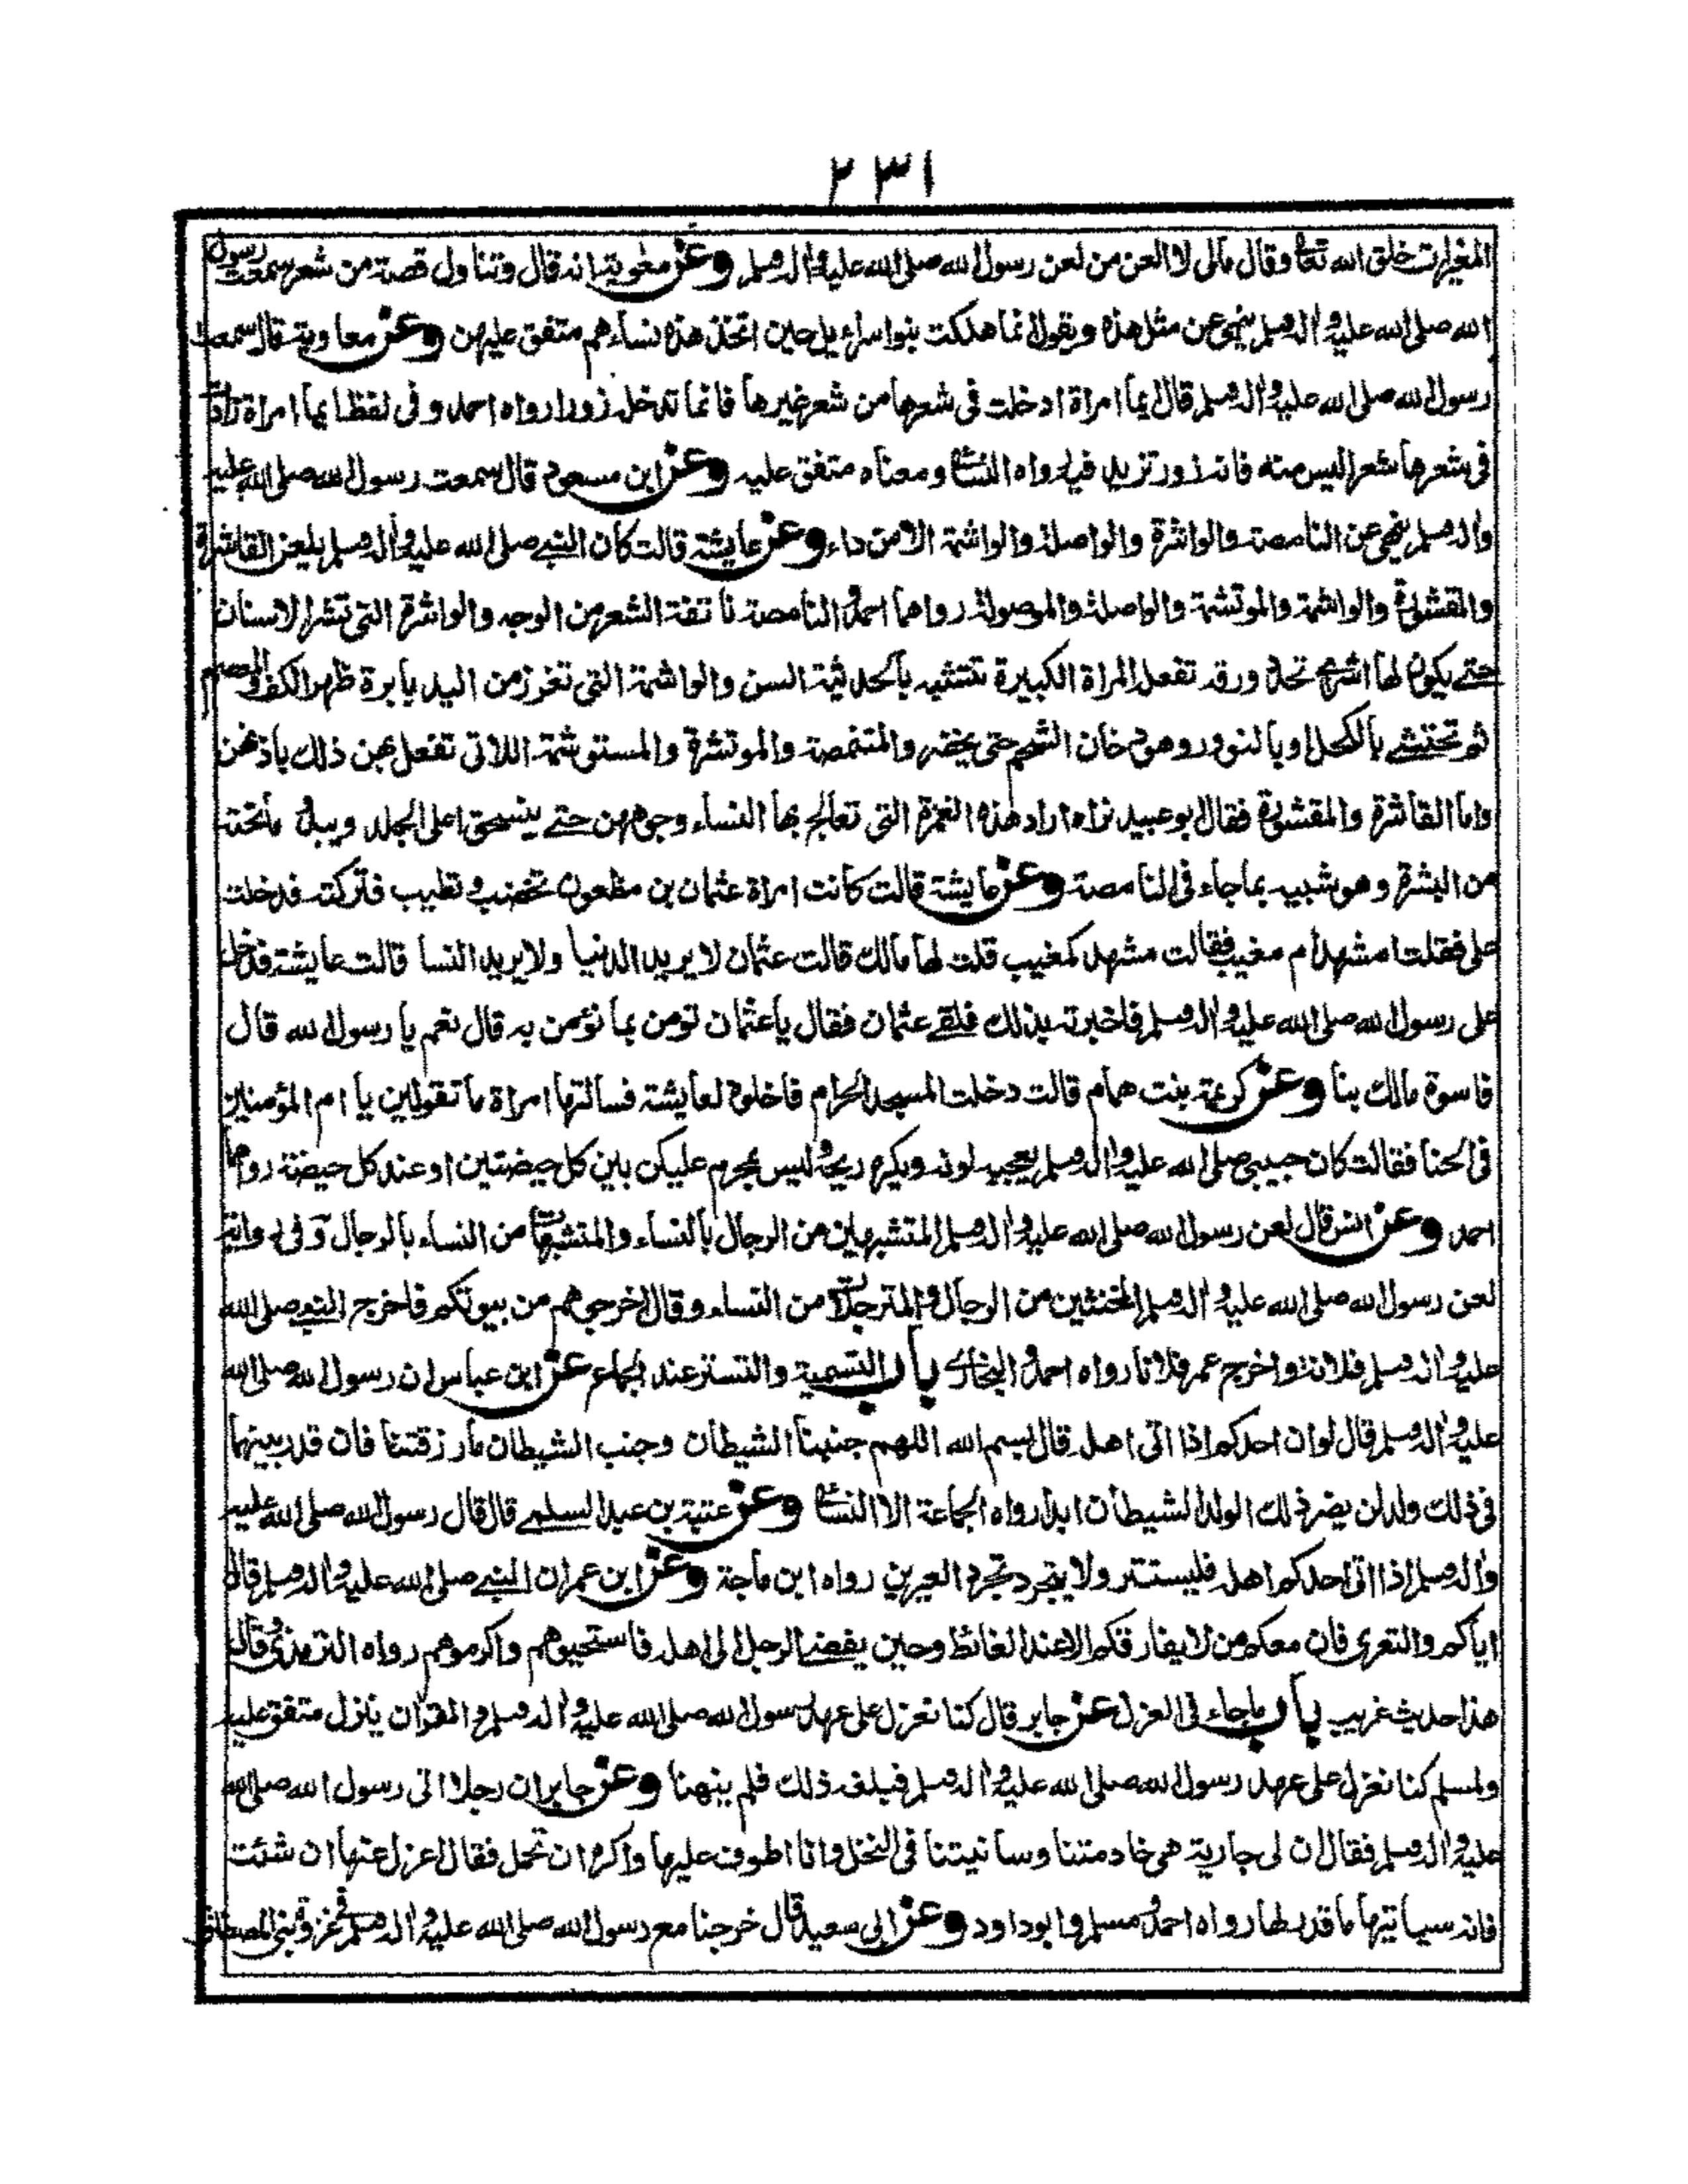 ٢٣١
المغيرات خلق الله تعا وقال مالى لا العن من لعن رسول الله صلى الله عليه واله وسلم وعن معوية انه قال وتناول قصة من شعر سمعت رسول
الله صلى الله عليه واله وسلم ينهى عن مثل هذه ويقول انما هلكت بنو اسراءيل حين اتخذ هذه نساءهم متفق عليهن وعن معاوية قال سمعت
رسول الله صلى الله عليه واله وسلم قال ايما امراة ادخلت فى شعرها من شعر غيرها فانما تدخله زورا رواه احمد وفى لفظ ايما امراة زادت
فى شعرها شعرا ليس منه فانه زور تزيد فيه رواه النسائى ومعناه متفق عليه وعن ابن مسعود قال سمعت رسول الله صلى الله عليه
واله وسلم ينهى عن النامصة والواشرة والواصلة والواشمة الا من داء وعن عايشة قالت كان النبى صلى الله عليه واله وسلم يلعن القاشرة
والمقشورة والواشمة والموتشمة والواصلة والموصولة رواهما احمد والنامصة ناتفة الشعر من الوجه والواشرة التى تشر الاسنان
حتى يكون لها اشر اى تحدد ورقة تفعله المراة الكبيرة تتشبه بالحديثة السن والواشمة التى تغرز من اليد بابرة ظهر الكف والمعصم
ثم تحتشى بالكحل او بالنوور وهو دخان الشحم حتى يخضر والمتنمصة والموتشرة والمستوشمة اللاتى تفعل بهن ذلك باذنهن
واما القاشرة والمقشورة فقال ابو عبيد نراه اراد هذه الغمرة التى تعالج بها النساء وجوههن حتى ينسحق اعلى الجلد ويبدو ماتحته
من البشرة وهو شبيه بما جاء فى النامصة وعن عايشة قالت كانت امراة عثمان بن مظعون تخضب وتطيب فتركته فدخلت
على فقلت امشهد أم مغيب فقالت مشهد كمغيب قلت لها مالك قالت عثمان لا يريد الدنيا ولا يريد النسا قالت عايشة فدخل
على رسول الله صلى الله عليه واله وسلم فاخبرته بذلك فلقى عثمان فقال يا عثمان تومن بما نؤمن به قال نعم يا رسول الله قال
فاسوة مالك بنا وعن كريمة بنت همام قالت دخلت المسجد الحرام فاخلوه لعايشة فسالتها امراة ما تقولين يا ام المؤمنين
فى الحنا فقالت كان حبيبى صلى الله عليه واله وسلم يعجبه لونه ويكره ريحه وليس بمحرم عليكن بين كل حيضتين او عند كل حيضة رواهما
احمد وعن انس قال لعن رسول الله صلى الله عليه واله وسلم المتشبهين من الرجال بالنساء والمتشبهات من النساء بالرجال وفى رواية
لعن رسول الله صلى الله عليه واله وسلم المخنثين من الرجال والمترجلات من النساء وقال اخرجوهم من بيوتكم فاخرج النبى صلى الله
عليه واله وسلم فلانة واخرج عمر فلانا رواه احمد والبخارى باب التسمية والتستر عند الجماع عن ابن عباس ان رسول الله صلى الله
عليه واله وسلم قال لو ان احدكم اذا اتى اهله قال بسم الله اللهم جنبنا الشيطان وجنب الشيطان ما رزقتنا فان قدر بينهما
فى ذلك ولد لن يضر ذلك الولد الشيطان ابدا رواه الجماعة الا النسائى وعن عتبة بن عبد السلمى قال قال رسول الله صلى الله عليه
واله وسلم اذا اتى احدكم اهله فليستتر ولا يتجرد تجرد العيرين رواه ابن ماجة وعن ابن عمر ان النبى صلى الله عليه واله وسلم قال
اياكم والتعرى فان معكم من لا يفارقكم الا عند الغائط وحين يفضى الرجل الى اهله فاستحيوهم واكرموهم رواه الترمذى وقال
هذا حديث غريب باب ماجاء فى العزل عن جابر قال كنا نعزل على عهد رسول الله صلى الله عليه واله وسلم والقرآن ينزل متفق عليه
ولمسلم كنا نعزل على عهد رسول الله صلى الله عليه واله وسلم فبلغه ذلك فلم ينهنا وعن جابر ان رجلا اتى رسول الله صلى الله
عليه واله وسلم فقال ان لى جارية هى خادمتنا وسانيتنا فى النخل وانا اطوف عليها واكره ان تحمل فقال اعزل عنها ان شئت
فانه سياتيها ما قدر لها رواه احمد ومسلم وابوداود وعن ابى سعيد قال خرجنا مع رسول الله صلى الله عليه واله وسلم فى غزوة بنى المصطلق